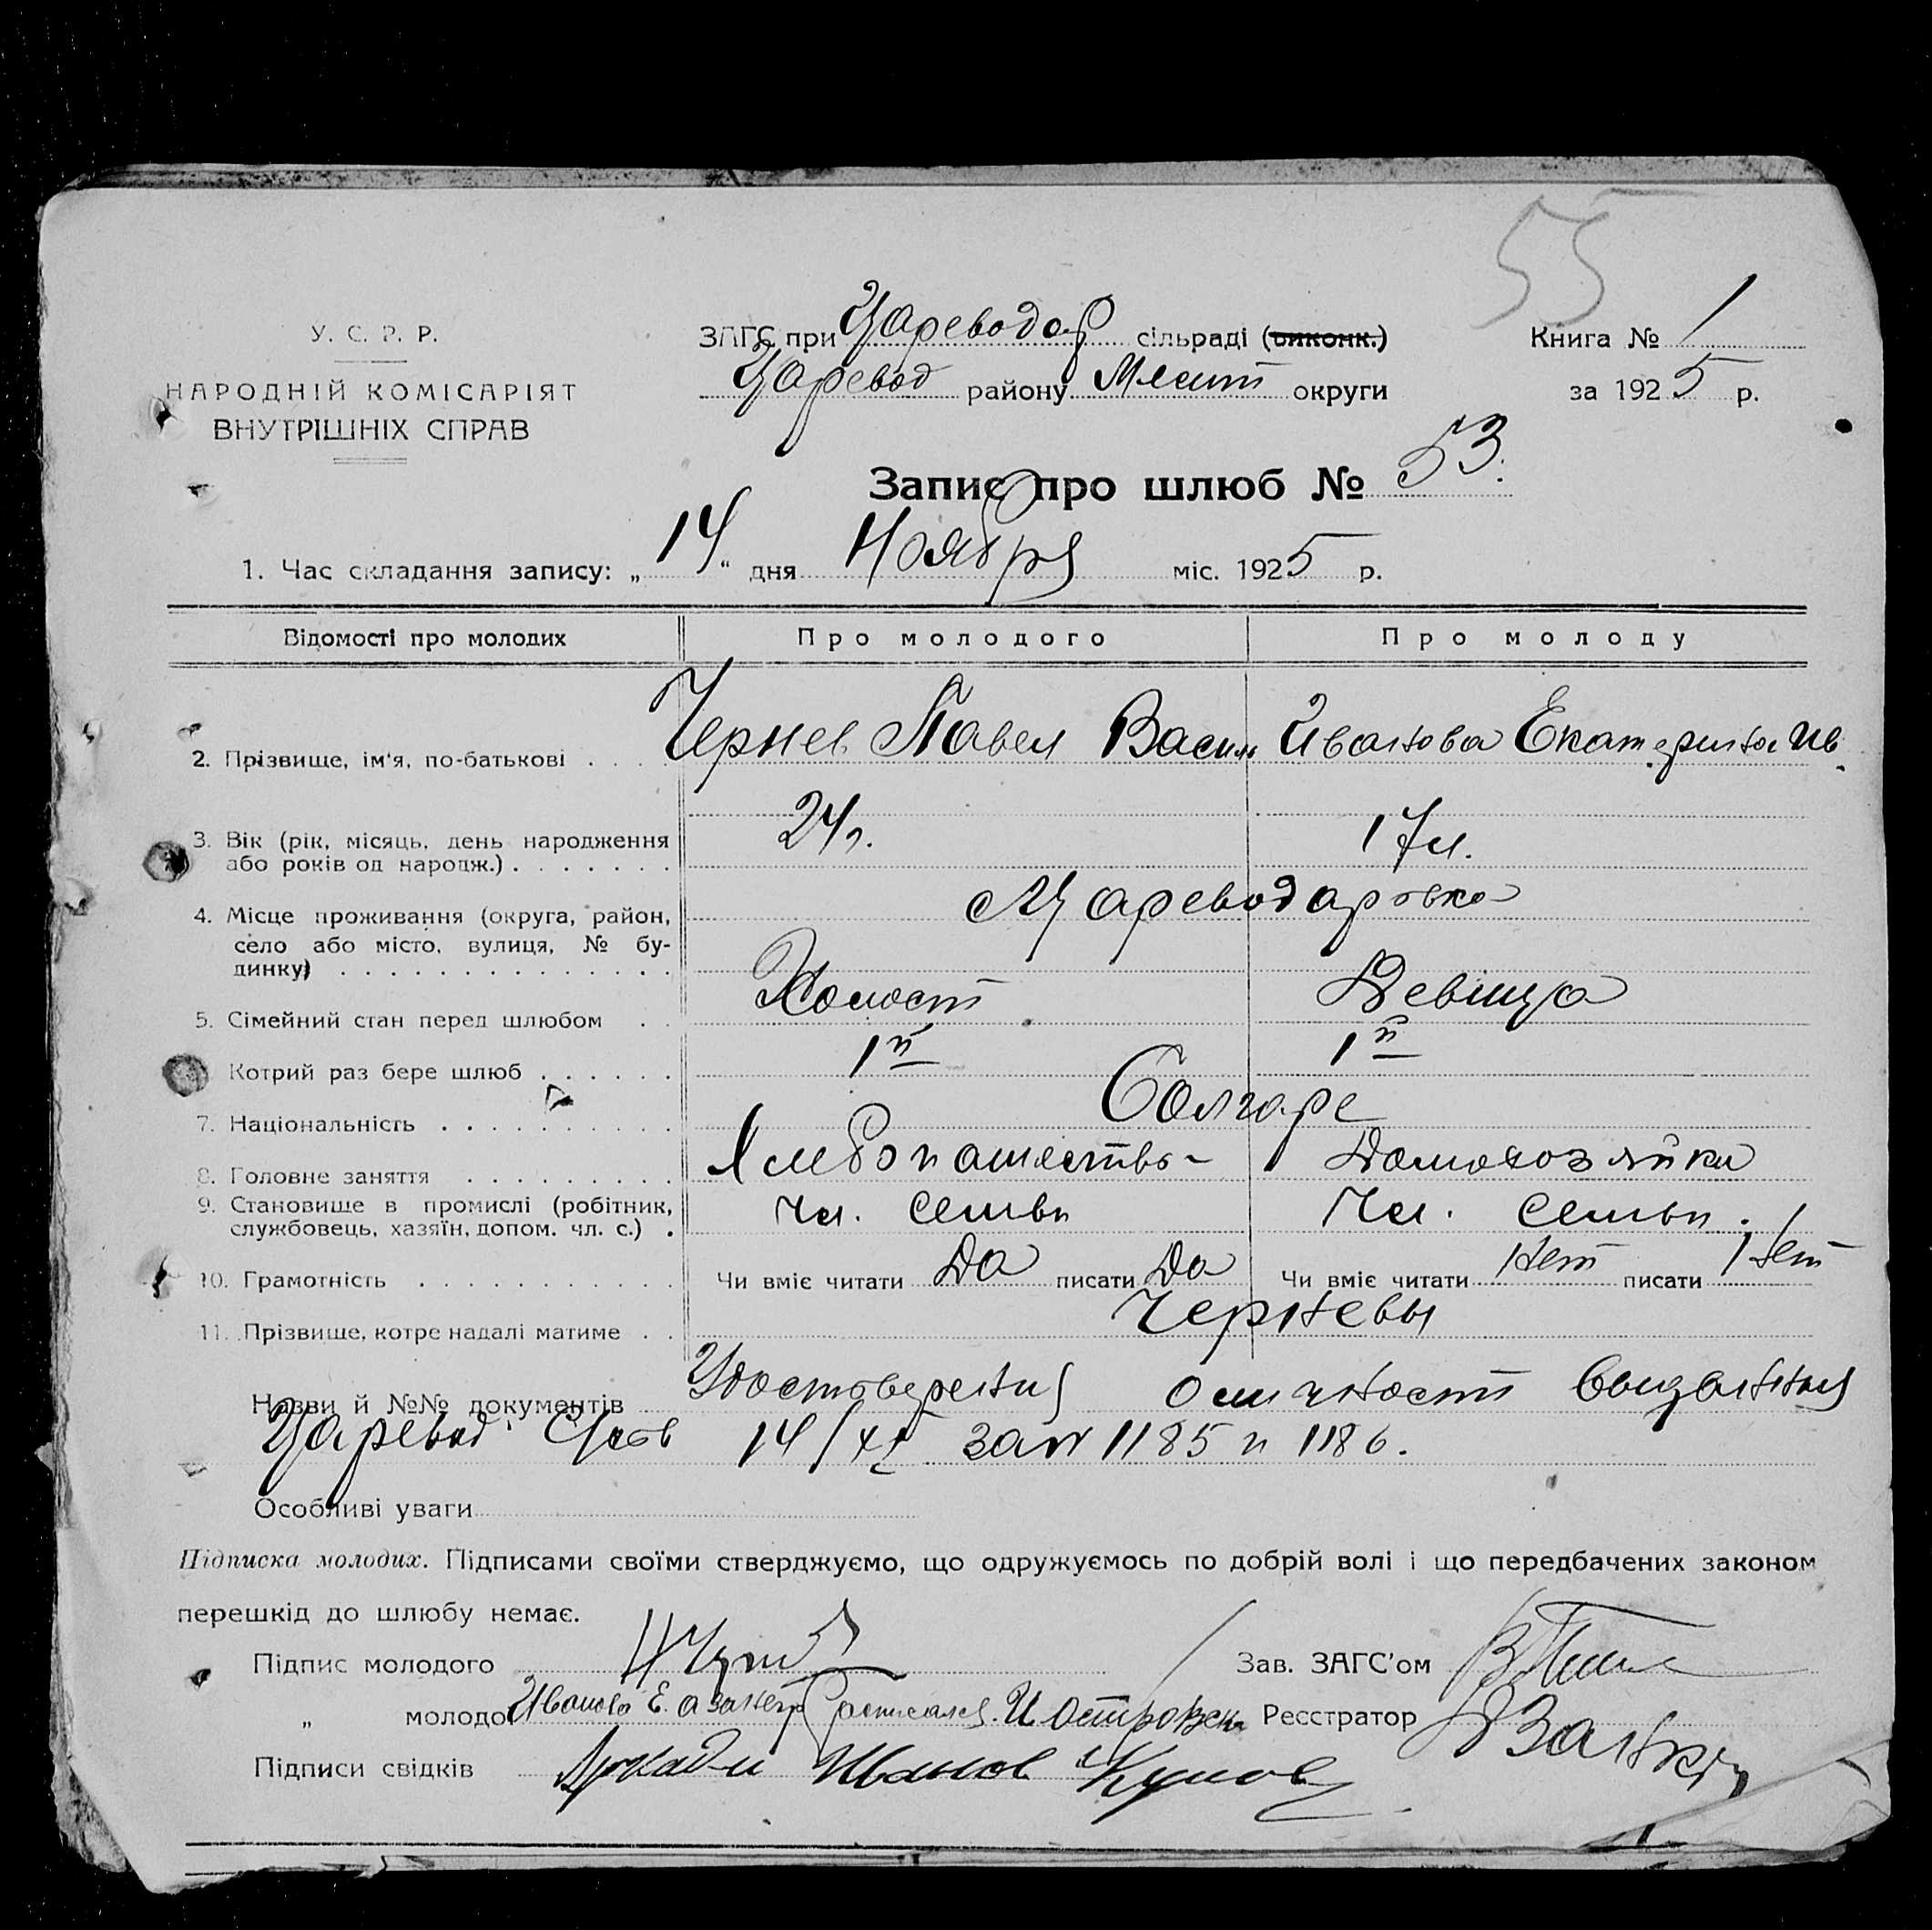 55
У. С. Р. Р.
НАРОДНІЙ КОМІСАРІЯТ
ВНУТРІШНІХ СПРАВ
ЗАГС при Цареводар сільраді (виконк.)
Царевод району Мелит округи
Книга № 1
за 1925 р.
Запис про шлюб № 53.
1. Час складання запису: „14“ дня Ноября міс. 1925 р.
Відомості про молодих Про молодого Про молоду
2. Прізвище, ім'я, по-батькові . . . . Чернев Павел Васил Иванова Екатерина Ив.
3. Вік (рік, місяць, день народження 24 г. 17 л.
або років од народж.) . . . . . . .
4. Місце проживання (округа, район, с Цареводаровка
село або місто, вулиця, № бу-
динку) . . . . . . . . . . . . . .
5. Сімейний стан перед шлюбом . . Холост Девица
Котрий раз бере шлюб . . . . . . 1й 1й
7. Національність . . . . . . . . . . Болгаре
8. Головне заняття . . . . . . . . . Хлебопашество Домохозяйка
9. Становище в промислі (робітник, Чл. семьи Чл. семьи.
службовець, хазяїн, допом. чл. с.) .
10. Грамотність . . . . . . . . . . . Чи вміє читати Да писати Да Чи вміє читати Нет писати Нет
11. Прізвище, котре надалі матиме . . Черневы
Назви й №№ документів Удостоверения о личност выданыя
Царевод 14/XI за № 1185 и 1186.
Особливі уваги
Підписка молодих. Підписами своїми стверджуємо, що одружуємось по добрій волі і що передбачених законом
перешкід до шлюбу немає.
Підпис молодого Зав. ЗАГС'ом
„ молодої Иванова Е. а за негр расписался. Реєстратор
Підписи свідків Аркади Иванов